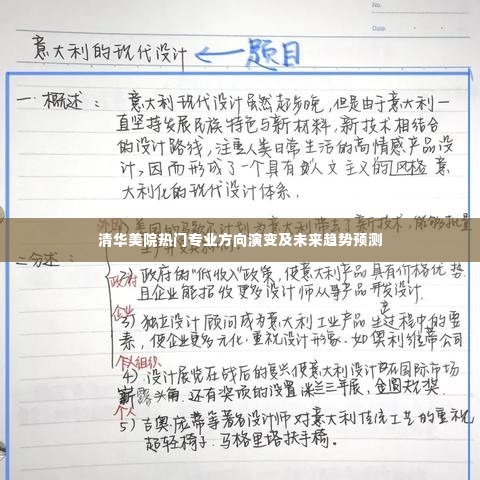 No.
Date
意大利的现代设计 ← 题目
一. 概述:
意大利现代设计虽然起步晚,但是由于意大利一
直坚持发展民族特色与新材料,新技术相结合
的设计路线,注重人类日常生活的高情感产品设
计,因而形成了一个具有人文主义的风格意
大利化的现代设计体系.
清华美院热门专业方向演变及未来趋势预测
二、分述:
政府
2) 政府的"低收入"政策,使意大利产品具有价格优势
且企业能招收更多设计师从事产品开发设计.
企业
3) 独立设计顾问成为意大利工业产品生产过程中的要
素,使企业更多元化.重视设计形象.如奥利维蒂公司
个人组织
4) 设计展览在战后的复兴使意大利设计在国际市场
崭露头角.还有奖项的设置 米兰三年展,金圆规奖.
个人
5) 吉奥·庞蒂等著名设计师对意大利传统工艺的重视
超轻椅子.马格里塔扶手椅.